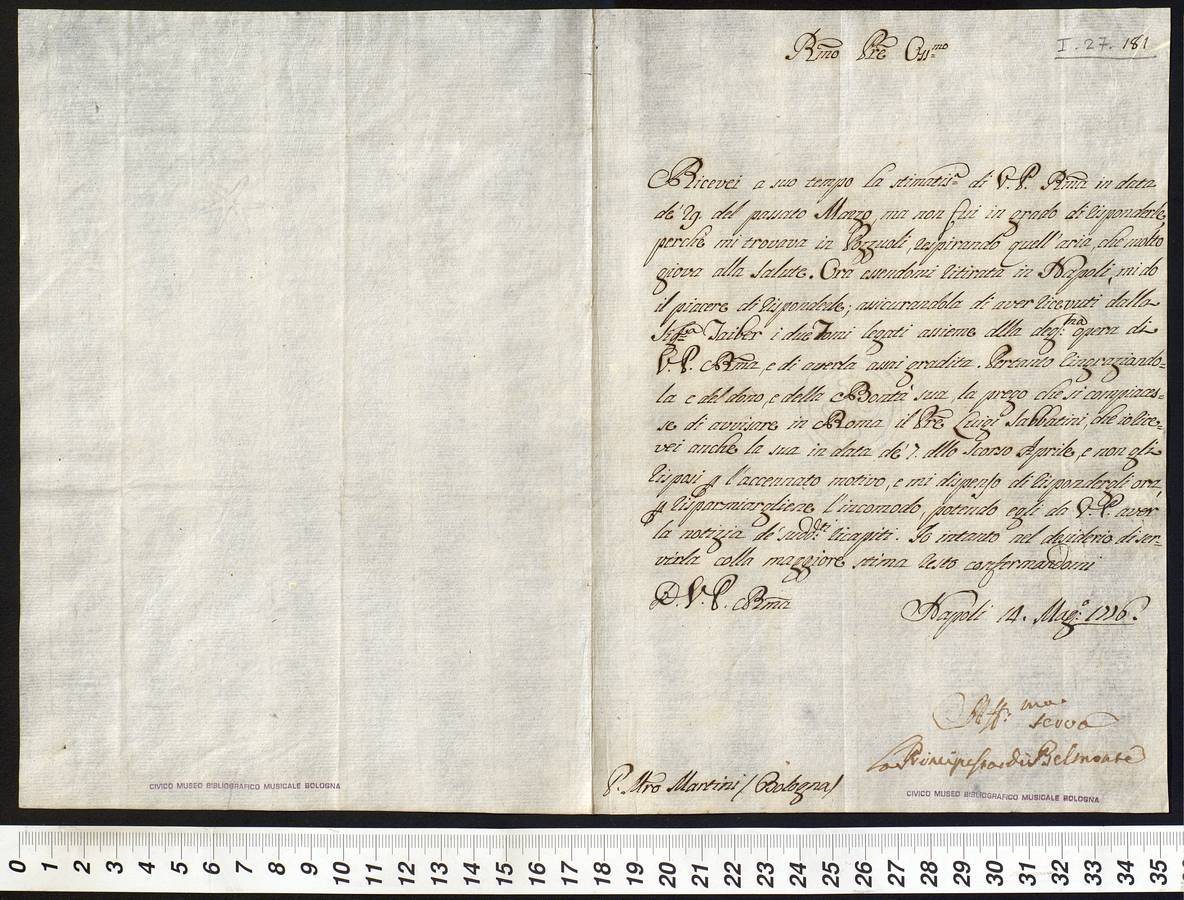 I. 27. 181
Rmo Pre Ossmo
Ricevei a suo tempo la stimatis.a di V. P. Rma in data
de' 29. del passato Marzo, ma non fui in grado di risponderle
perchè mi trovava in Pozzuoli, respirando quell'aria, che molto
giova alla salute. Ora essendomi ritirata in Napoli, mi do
il piacere di risponderle; assicurandola di aver ricevuti dalla
Sig.ra Taiber i due Tomi legati assieme della deg.ma opera di
V. P. Rma, e di averla assai gradita. Pertanto ringraziando=
la e del dono, e della Bontà sua, la prego che si compiaces=
se di avvisare in Roma il Pre Luigi Sabbatini, che io rice=
vei anche la sua in data de' 7. dello scorso Aprile, e non gli
risposi p l'accennato motivo, e mi dispenso di rispondergli ora,
p risparmiargliene l'incomodo, potendo egli da V. P. aver
la notizia de' sudd.ti ricapiti. Io intanto nel desiderio di ser=
virla colla maggiore stima resto confermandomi
D. V. P. Rma
Napoli 14. Mag.o 1776.
Aff.ma
serva
La Principessa di Belmonte
P. Mro Martini / Bologna /
CIVICO MUSEO BIBLIOGRAFICO MUSICALE BOLOGNA
CIVICO MUSEO BIBLIOGRAFICO MUSICALE BOLOGNA
0 1 2 3 4 5 6 7 8 9 10 11 12 13 14 15 16 17 18 19 20 21 22 23 24 25 26 27 28 29 30 31 32 33 34 35